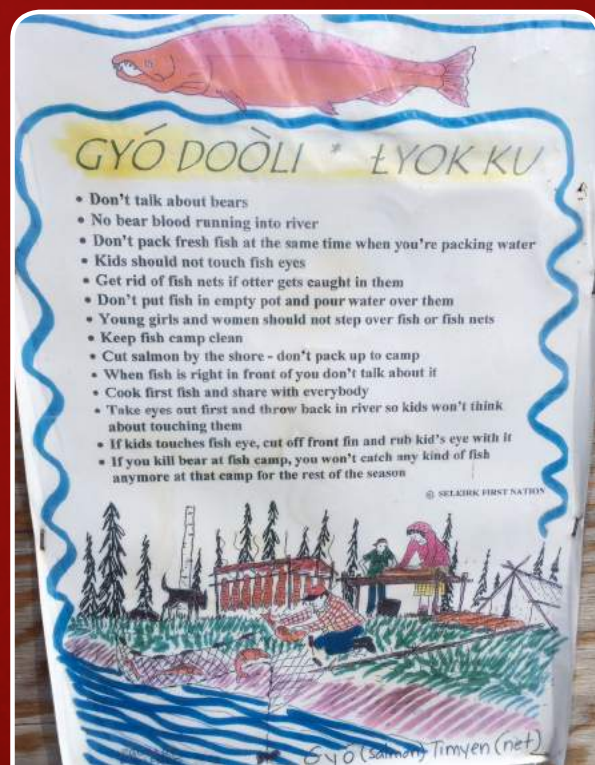 GYÓ DOÒLI * ŁYOK KU
• Don't talk about bears
• No bear blood running into river
• Don't pack fresh fish at the same time when you're packing water
• Kids should not touch fish eyes
• Get rid of fish nets if otter gets caught in them
• Don't put fish in empty pot and pour water over them
• Young girls and women should not step over fish or fish nets
• Keep fish camp clean
• Cut salmon by the shore - don't pack up to camp
• When fish is right in front of you don't talk about it
• Cook first fish and share with everybody
• Take eyes out first and throw back in river so kids won't think
about touching them
• If kids touches fish eye, cut off front fin and rub kid's eye with it
• If you kill bear at fish camp, you won't catch any kind of fish
anymore at that camp for the rest of the season
© SELKIRK FIRST NATION
Gyó (salmon) Timyen (net)